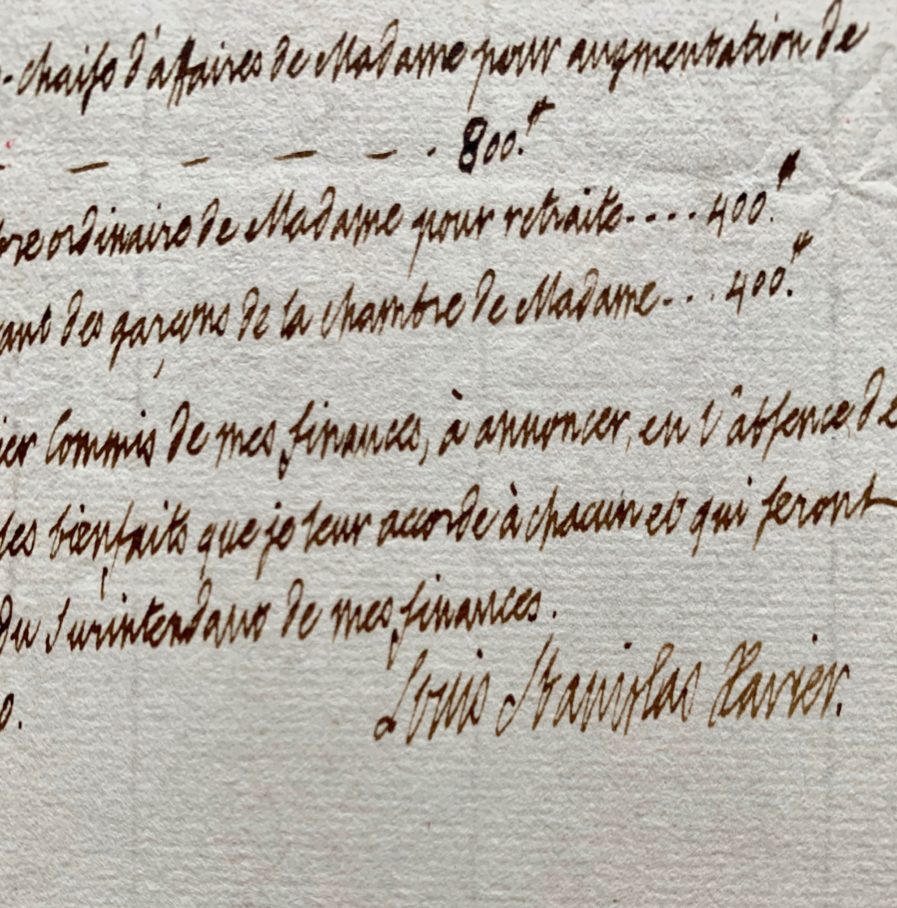 -chaise d'affaires de Madame pour augmentation de
— — — — - 800.₶
bre ordinaire de Madame pour retraite.... 400.₶
vant des garçons de la chambre de Madame... 400.₶
ier Commis de mes finances, à annoncer, en l'absence de
les bienfaits que je leur accorde à chacun et qui seront
du Surintendant de mes finances.
0. Louis Stanislas Xavier.